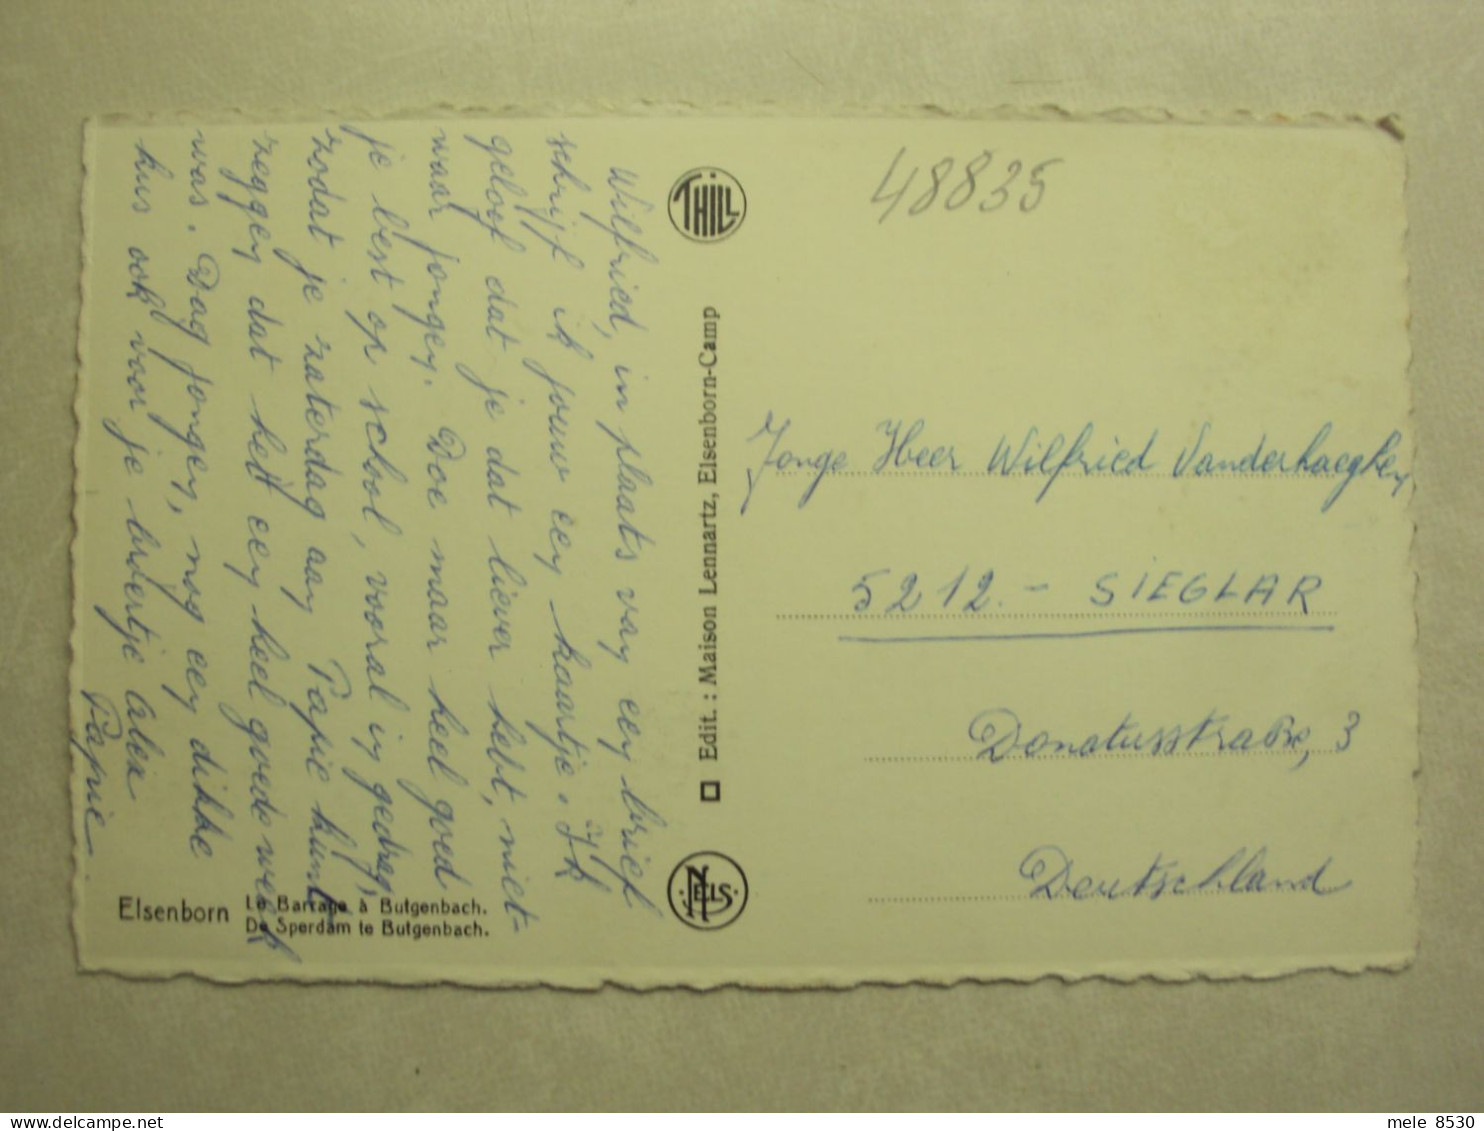 Wilfried, in plaats van een brief
schrijf ik jouw een kaartje. Ik
geloof dat je dat liever hebt, niet-
waar jongen. Doe maar heel goed
je best op school, vooral in gedrag,
zodat je zaterdag aan Papie kunt
zeggen dat het een heel goede week
was. Dag jongen, nog een dikke
kus ook voor je broertje Alex
Papie.
Elsenborn
Le Barrage à Butgenbach.
De Sperdam te Butgenbach.
THILL
Edit. : Maison Lennartz, Elsenborn-Camp
NELS
48835
Jonge Heer Wilfried Vanderhaeghen
5212.- SIEGLAR
Donatusstraße, 3
Deutschland
mele 8530